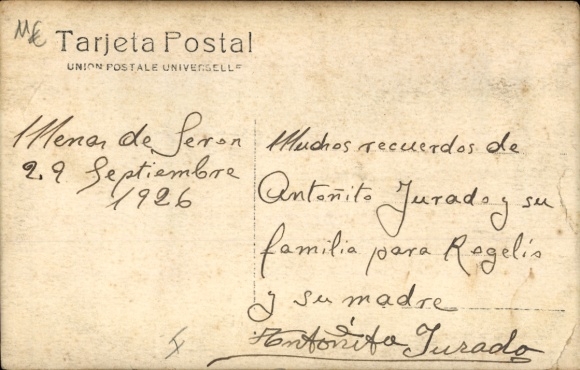 Tarjeta Postal
UNION POSTALE UNIVERSELLE
Menas de Seron
29 Septiembre
1926
Muchos recuerdos de
Antoñito Jurado y su
familia para Rogelio
y su madre
Antoñito Jurado